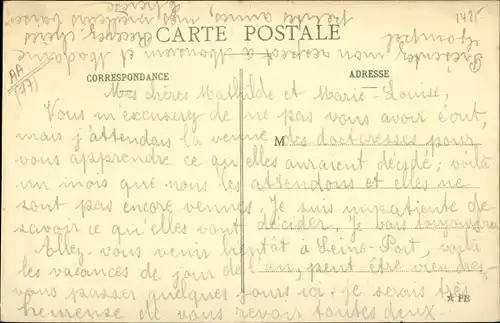 1425
CARTE POSTALE
CORRESPONDANCE
ADRESSE
Mes chères Mathilde et Marie-Louise,
Vous m'excuserez de ne pas vous avoir écrit,
mais j'attendais la venue des doctoresses pour
M
vous apprendre ce qu'elles auraient décidé; voilà
un mois que nous les attendons et elles ne
sont pas encore venues. Je suis impatiente de
savoir ce qu'elles vont décider. Je vais toujours
Allez-vous venir bientôt à Seine-Port, voilà
les vacances de jour de l'an, peut être viendrez-
vous passer quelques jours ici. je serais très
heureuse de vous revoir toutes deux.
Présentez mon respect à Monsieur et Madame
Recevez, chères
petites amies, mes meilleurs baisers
Thérèse
FB